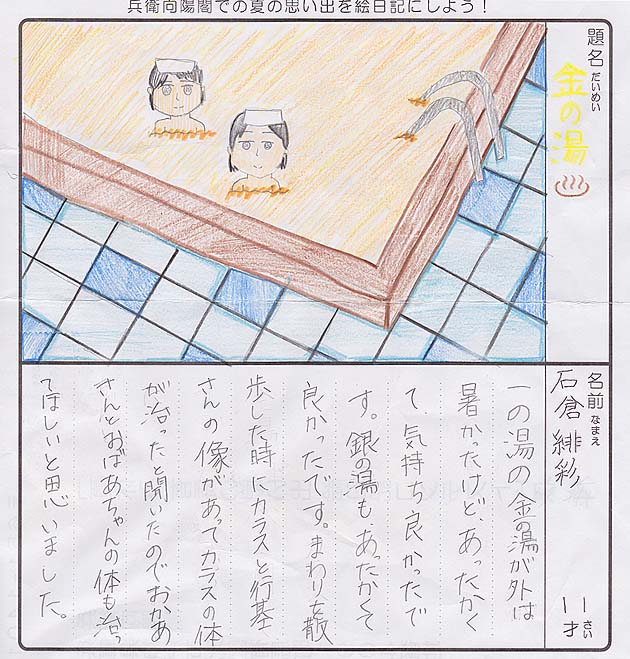 兵衛向陽閣での夏の思い出を絵日記にしよう！
題名 だいめい
金の湯
名前 なまえ
石倉 緋彩
11才 さい
一の湯の金の湯が外は
暑かったけど、あったかく
て、気持ち良かったで
す。銀の湯もあったかくて
良かったです。まわりを散
歩した時にカラスと行基
さんの像があってカラスの体
が治ったと聞いたのでおかあ
さんとおばあちゃんの体も治っ
てほしいと思いました。